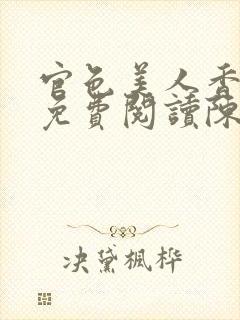 官色美人香
免費閱讀陳
决黛楓桦